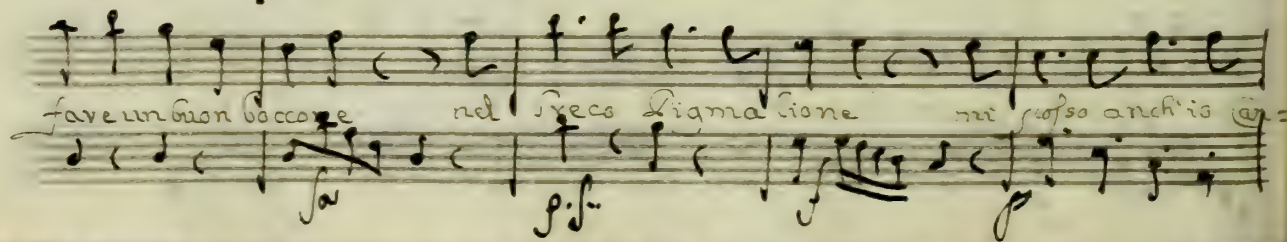 fave un buon boccone nel Greco Pigmalione mi posso anch'io can=
fa p. f. f p